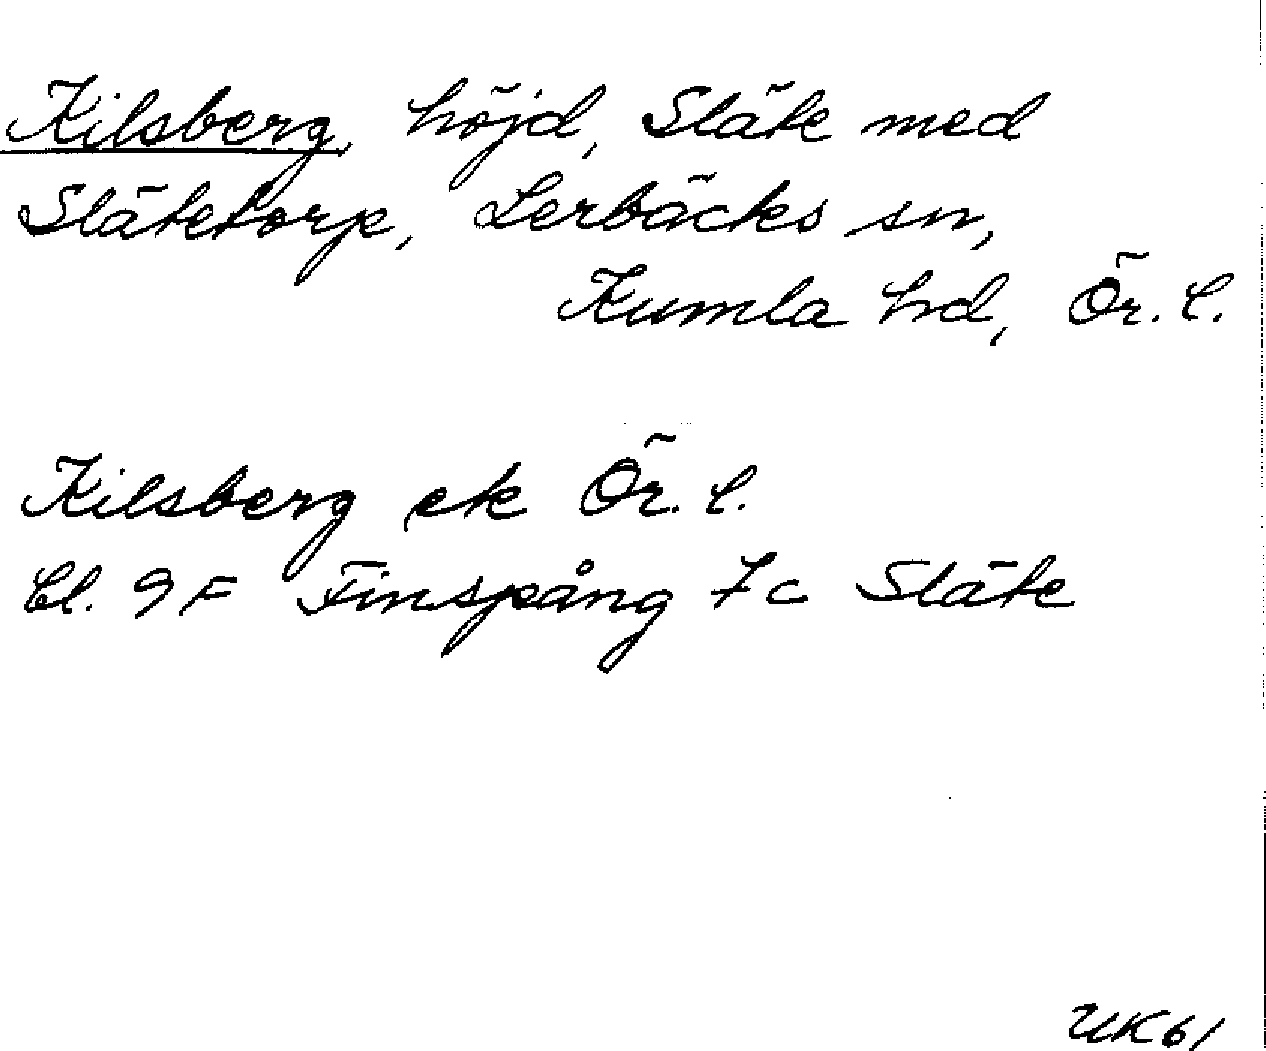 Kilsberg, höjd, Släte med
Slätetorp, Lerbäcks sn,
Kumla hd, Ör. l.
Kilsberg ek Ör. l.
bl. 9F Finspång 7c Släte
UK61